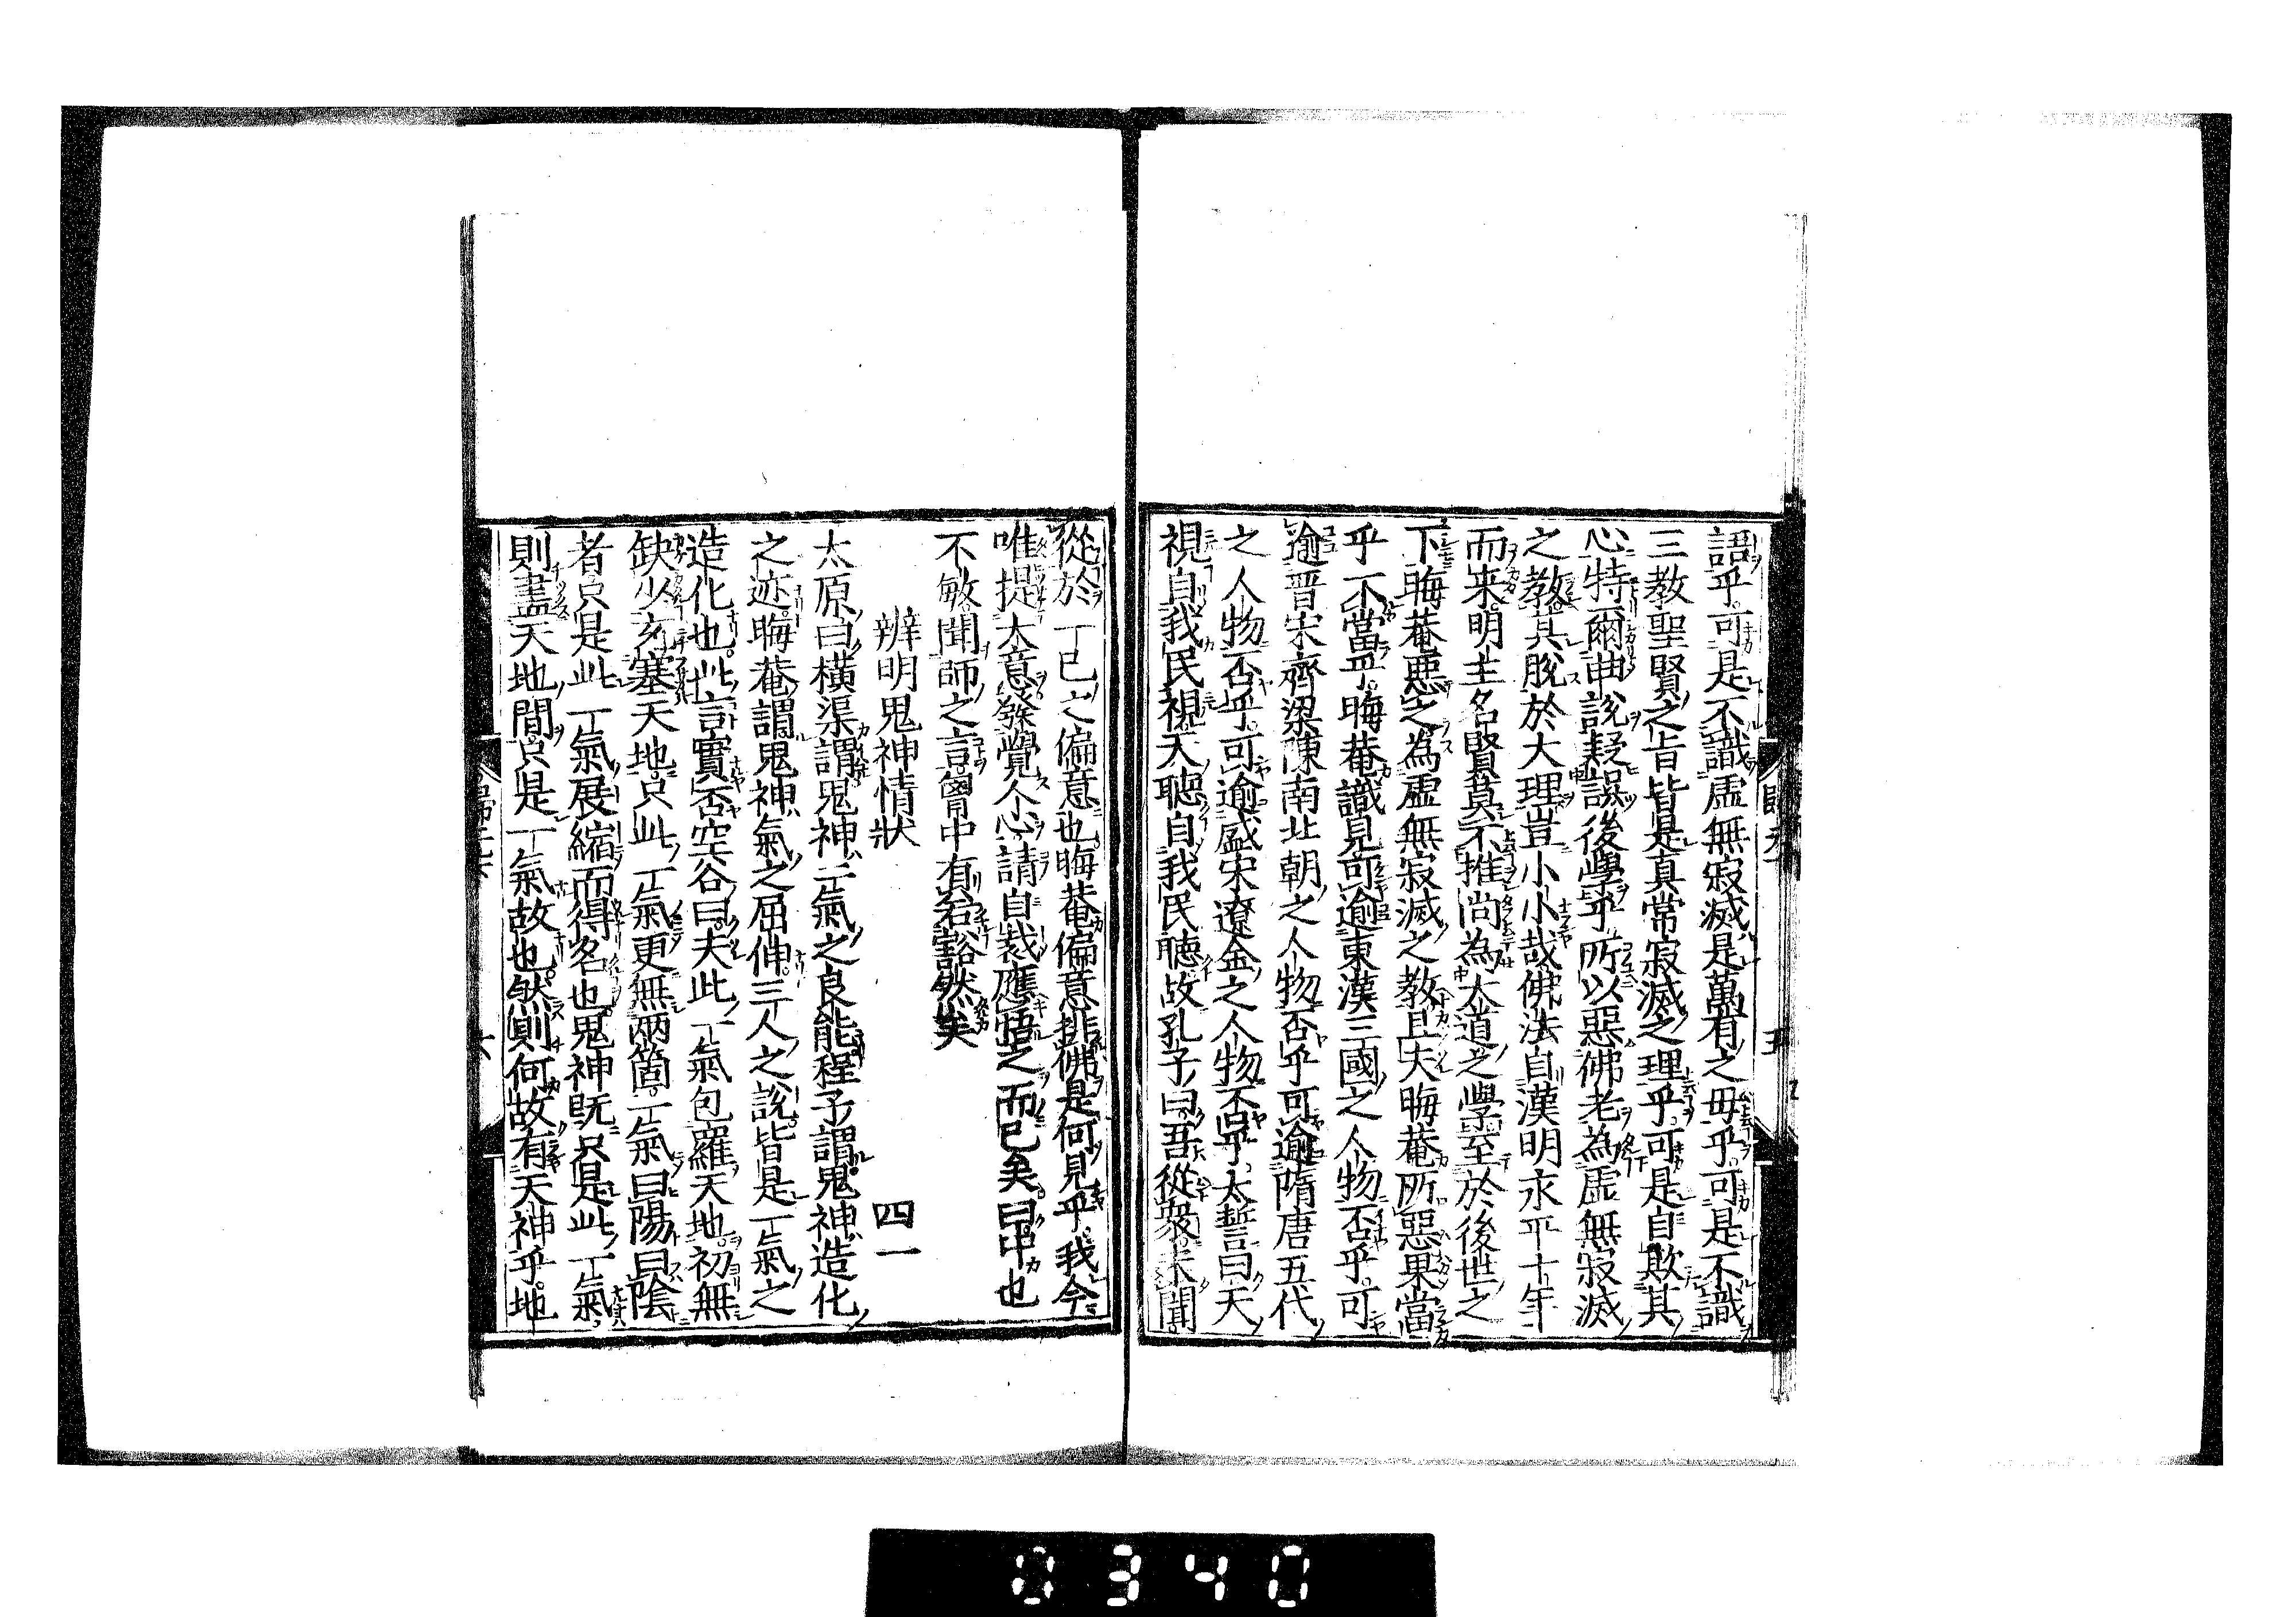 語乎可是不識虛無寂滅是萬有之毋乎可是不識
三教聖賢之旨皆是真常寂滅之理乎可是自欺其
心特爾曲說疑誤後學乎所以惡佛老為虛無寂滅
之教其脫於大理豈小小哉佛法自漢明永平十年
而来明主名賢莫不推尚為大道之學至於後世之
下晦菴惡之為虛無寂滅之教且夫晦菴所惡果當
乎不當乎晦菴識見可逾東漢三國之人物否乎可
逾晋宋齊梁陳南北朝之人物否乎可逾隋唐五代
之人物否乎可逾盛宋遼金之人物否乎太誓曰天
視自我民視天聽自我民聽故孔子曰吾從衆未聞
從於一丁己之偏意也晦菴偏意排佛是何見乎我今
唯提大意發覺个心請自裁應悟之而已矣曰中也
不敏聞師之言胷中有若豁然矣
辨明鬼神情狀 四一
太原曰橫渠謂鬼神二氣之良能程子謂鬼神造化
之迹晦菴謂鬼神氣之屈伸三人之說皆是一氣之
造化也此言實否空谷曰夫此一氣包羅天地初無
缺少玄塞天地只此一氣更無兩箇一氣曰陽曰陰
者只是此一氣展縮而得名也鬼神既只是此一氣
則盡天地間只是一氣故也然則何故有天神乎地
0340